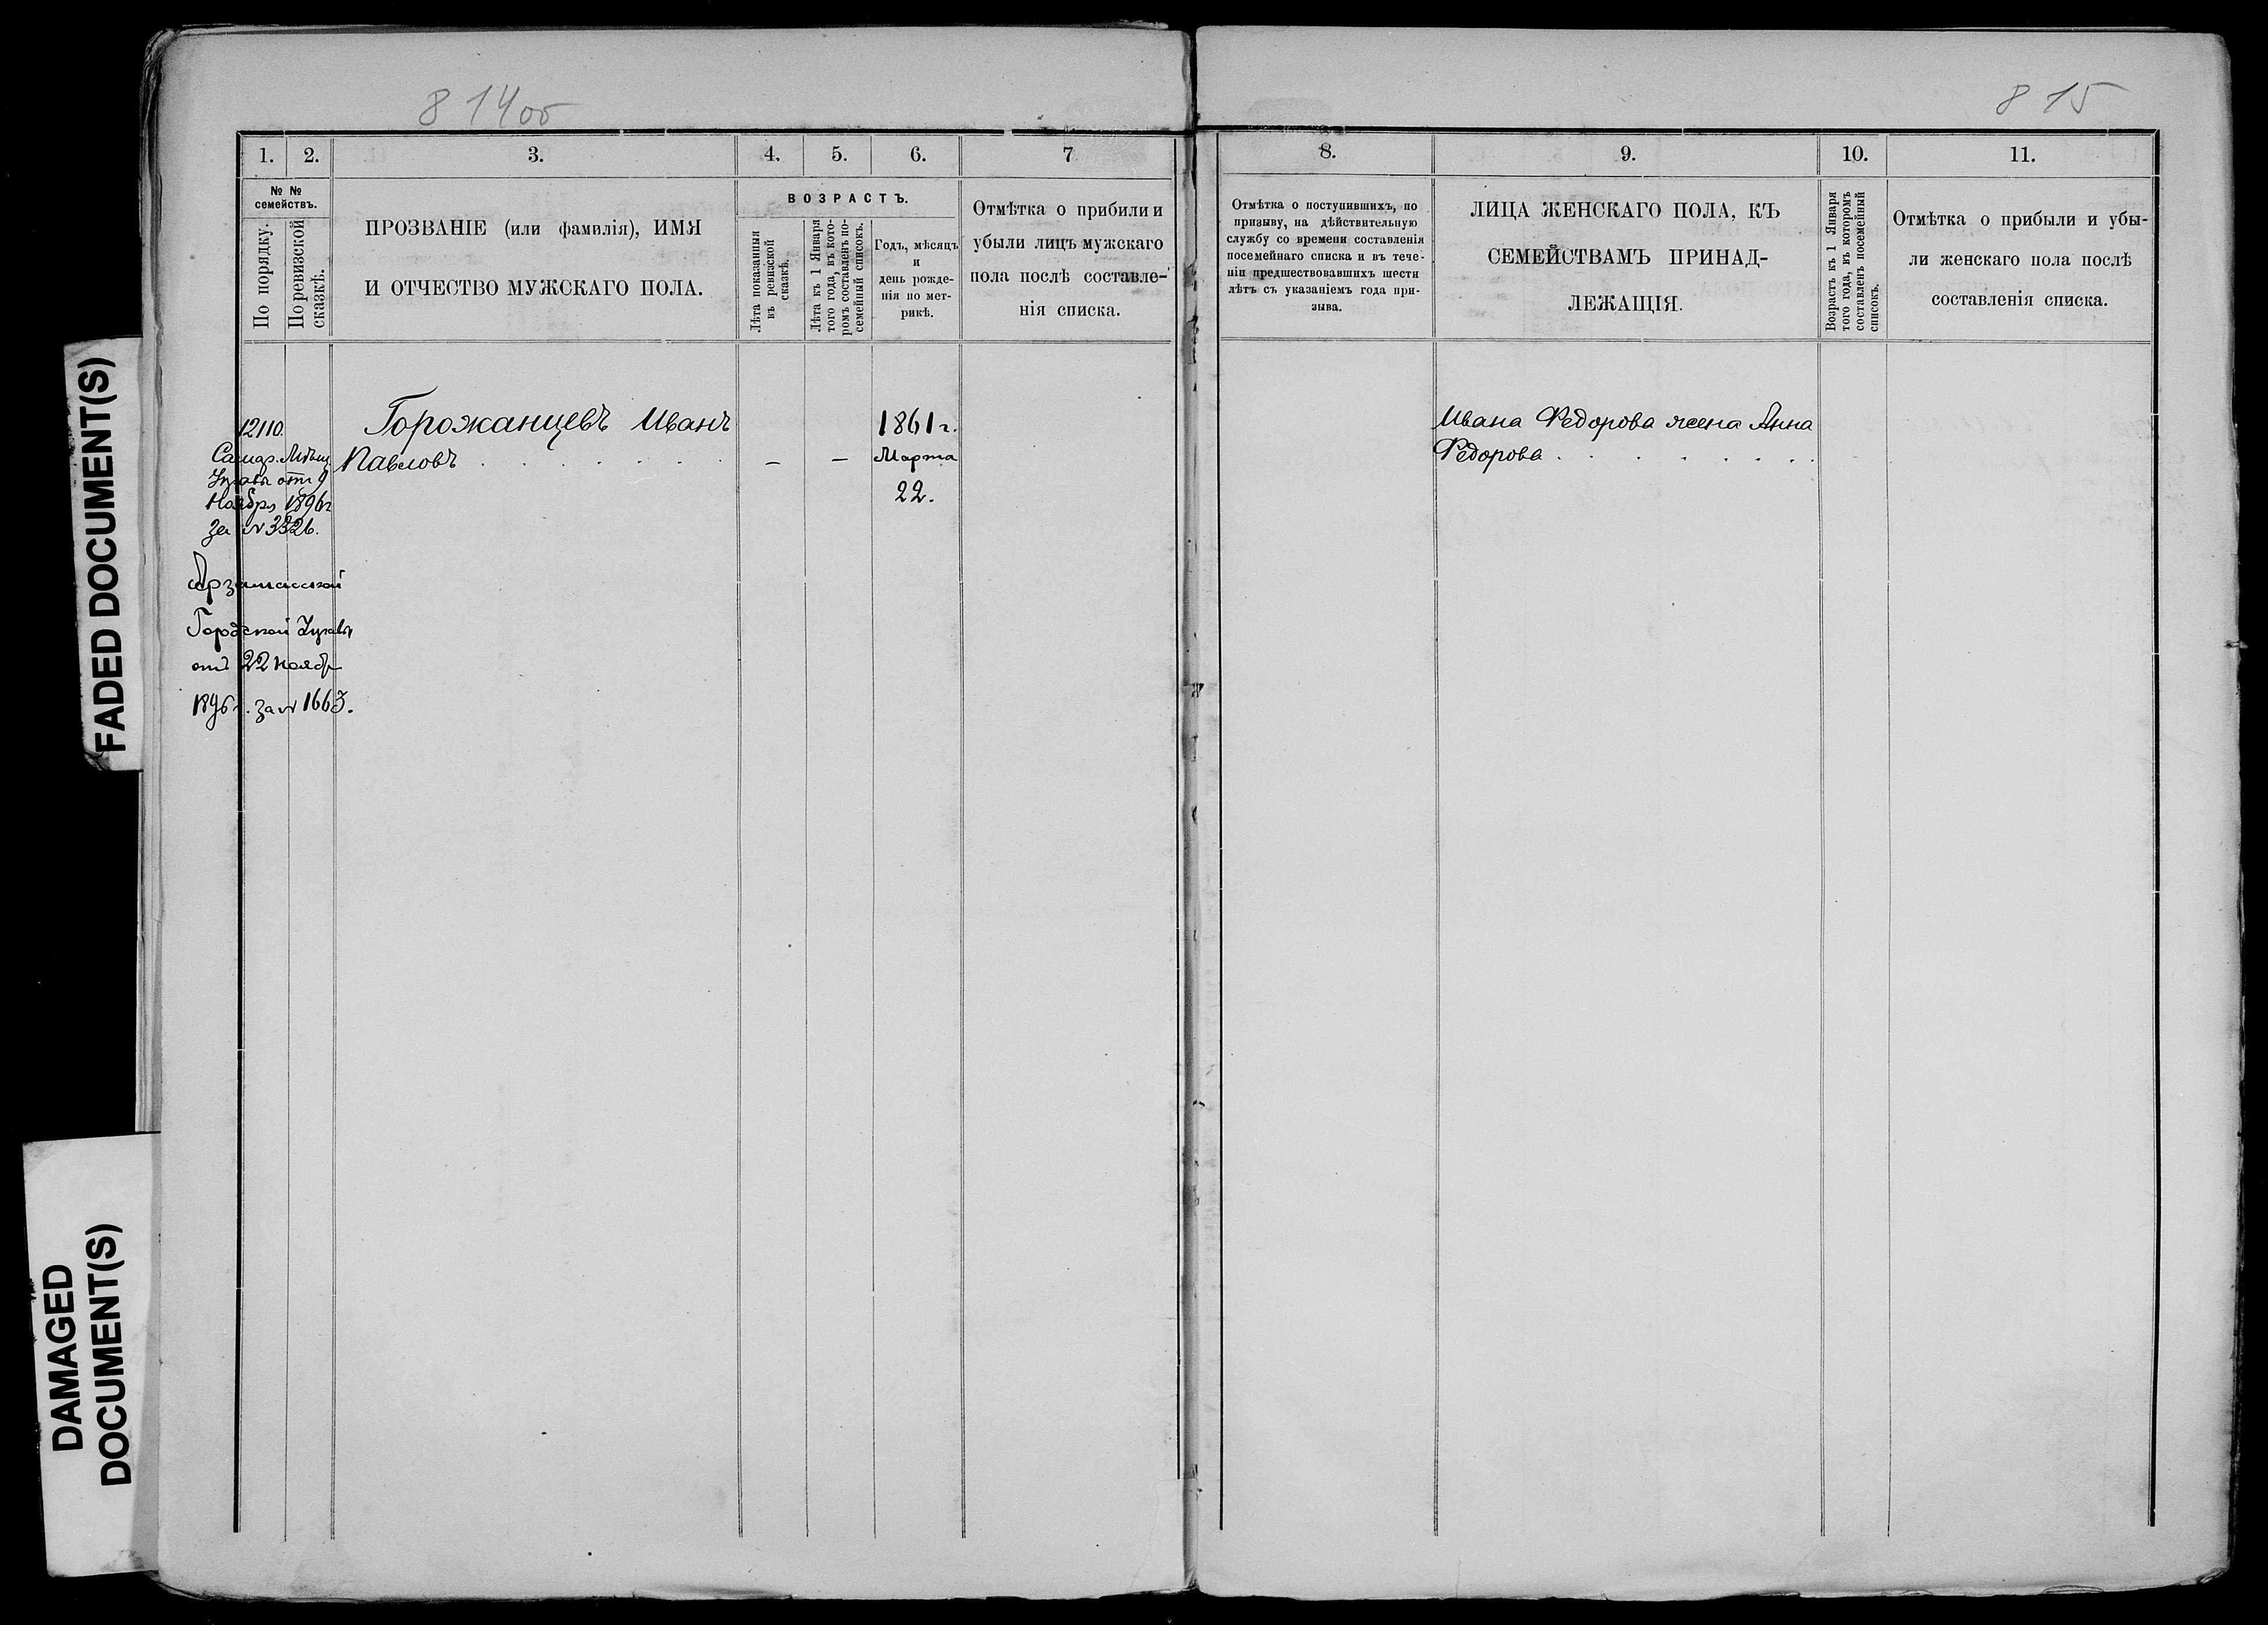 FADED DOCUMENT(S)
DAMAGED
DOCUMENT(S)
814об
1. 2. 3. 4. 5. 6. 7
№ №
семействъ.
По порядку.
По ревизской
сказкѣ.
ПРОЗВАНІЕ (или фамилія), ИМЯ
И ОТЧЕСТВО МУЖСКАГО ПОЛА.
ВОЗРАСТЪ.
Лѣта показанныя
въ ревизской
сказкѣ.
Лѣта къ 1 Января
того года, въ кото-
ромъ составленъ по-
семейный списокъ.
Годъ, мѣсяцъ
и
день рожде-
нія по мет-
рикѣ.
Отмѣтка о прибили и
убыли лицъ мужскаго
пола послѣ составле-
нія списка.
12110.
Самар. Мѣщ
Управы отъ 9
Ноября 1896г
за №3326.
Арзамасской
Городской Управы
отъ 22 ноябр
1896г. за № 1663.
Горожанцевъ Иванъ
Павловъ . . . . . . . — —
1861 г.
Марта
22.
815
8. 9. 10. 11.
Отмѣтка о поступившихъ, по
призыву, на дѣйствительную
службу со времени составленія
посемейнаго списка и въ тече-
ніи предшествовавшихъ шести
лѣтъ съ указаніемъ года при-
зыва.
ЛИЦА ЖЕНСКАГО ПОЛА, КЪ
СЕМЕЙСТВАМЪ ПРИНАД-
ЛЕЖАЩІЯ.
Возрастъ къ 1 Января
того года, въ которомъ
составленъ посемейный
списокъ.
Отмѣтка о прибыли и убы-
ли женскаго пола послѣ
составленія списка.
Ивана Федорова жена Анна
Федорова . . . . . . .